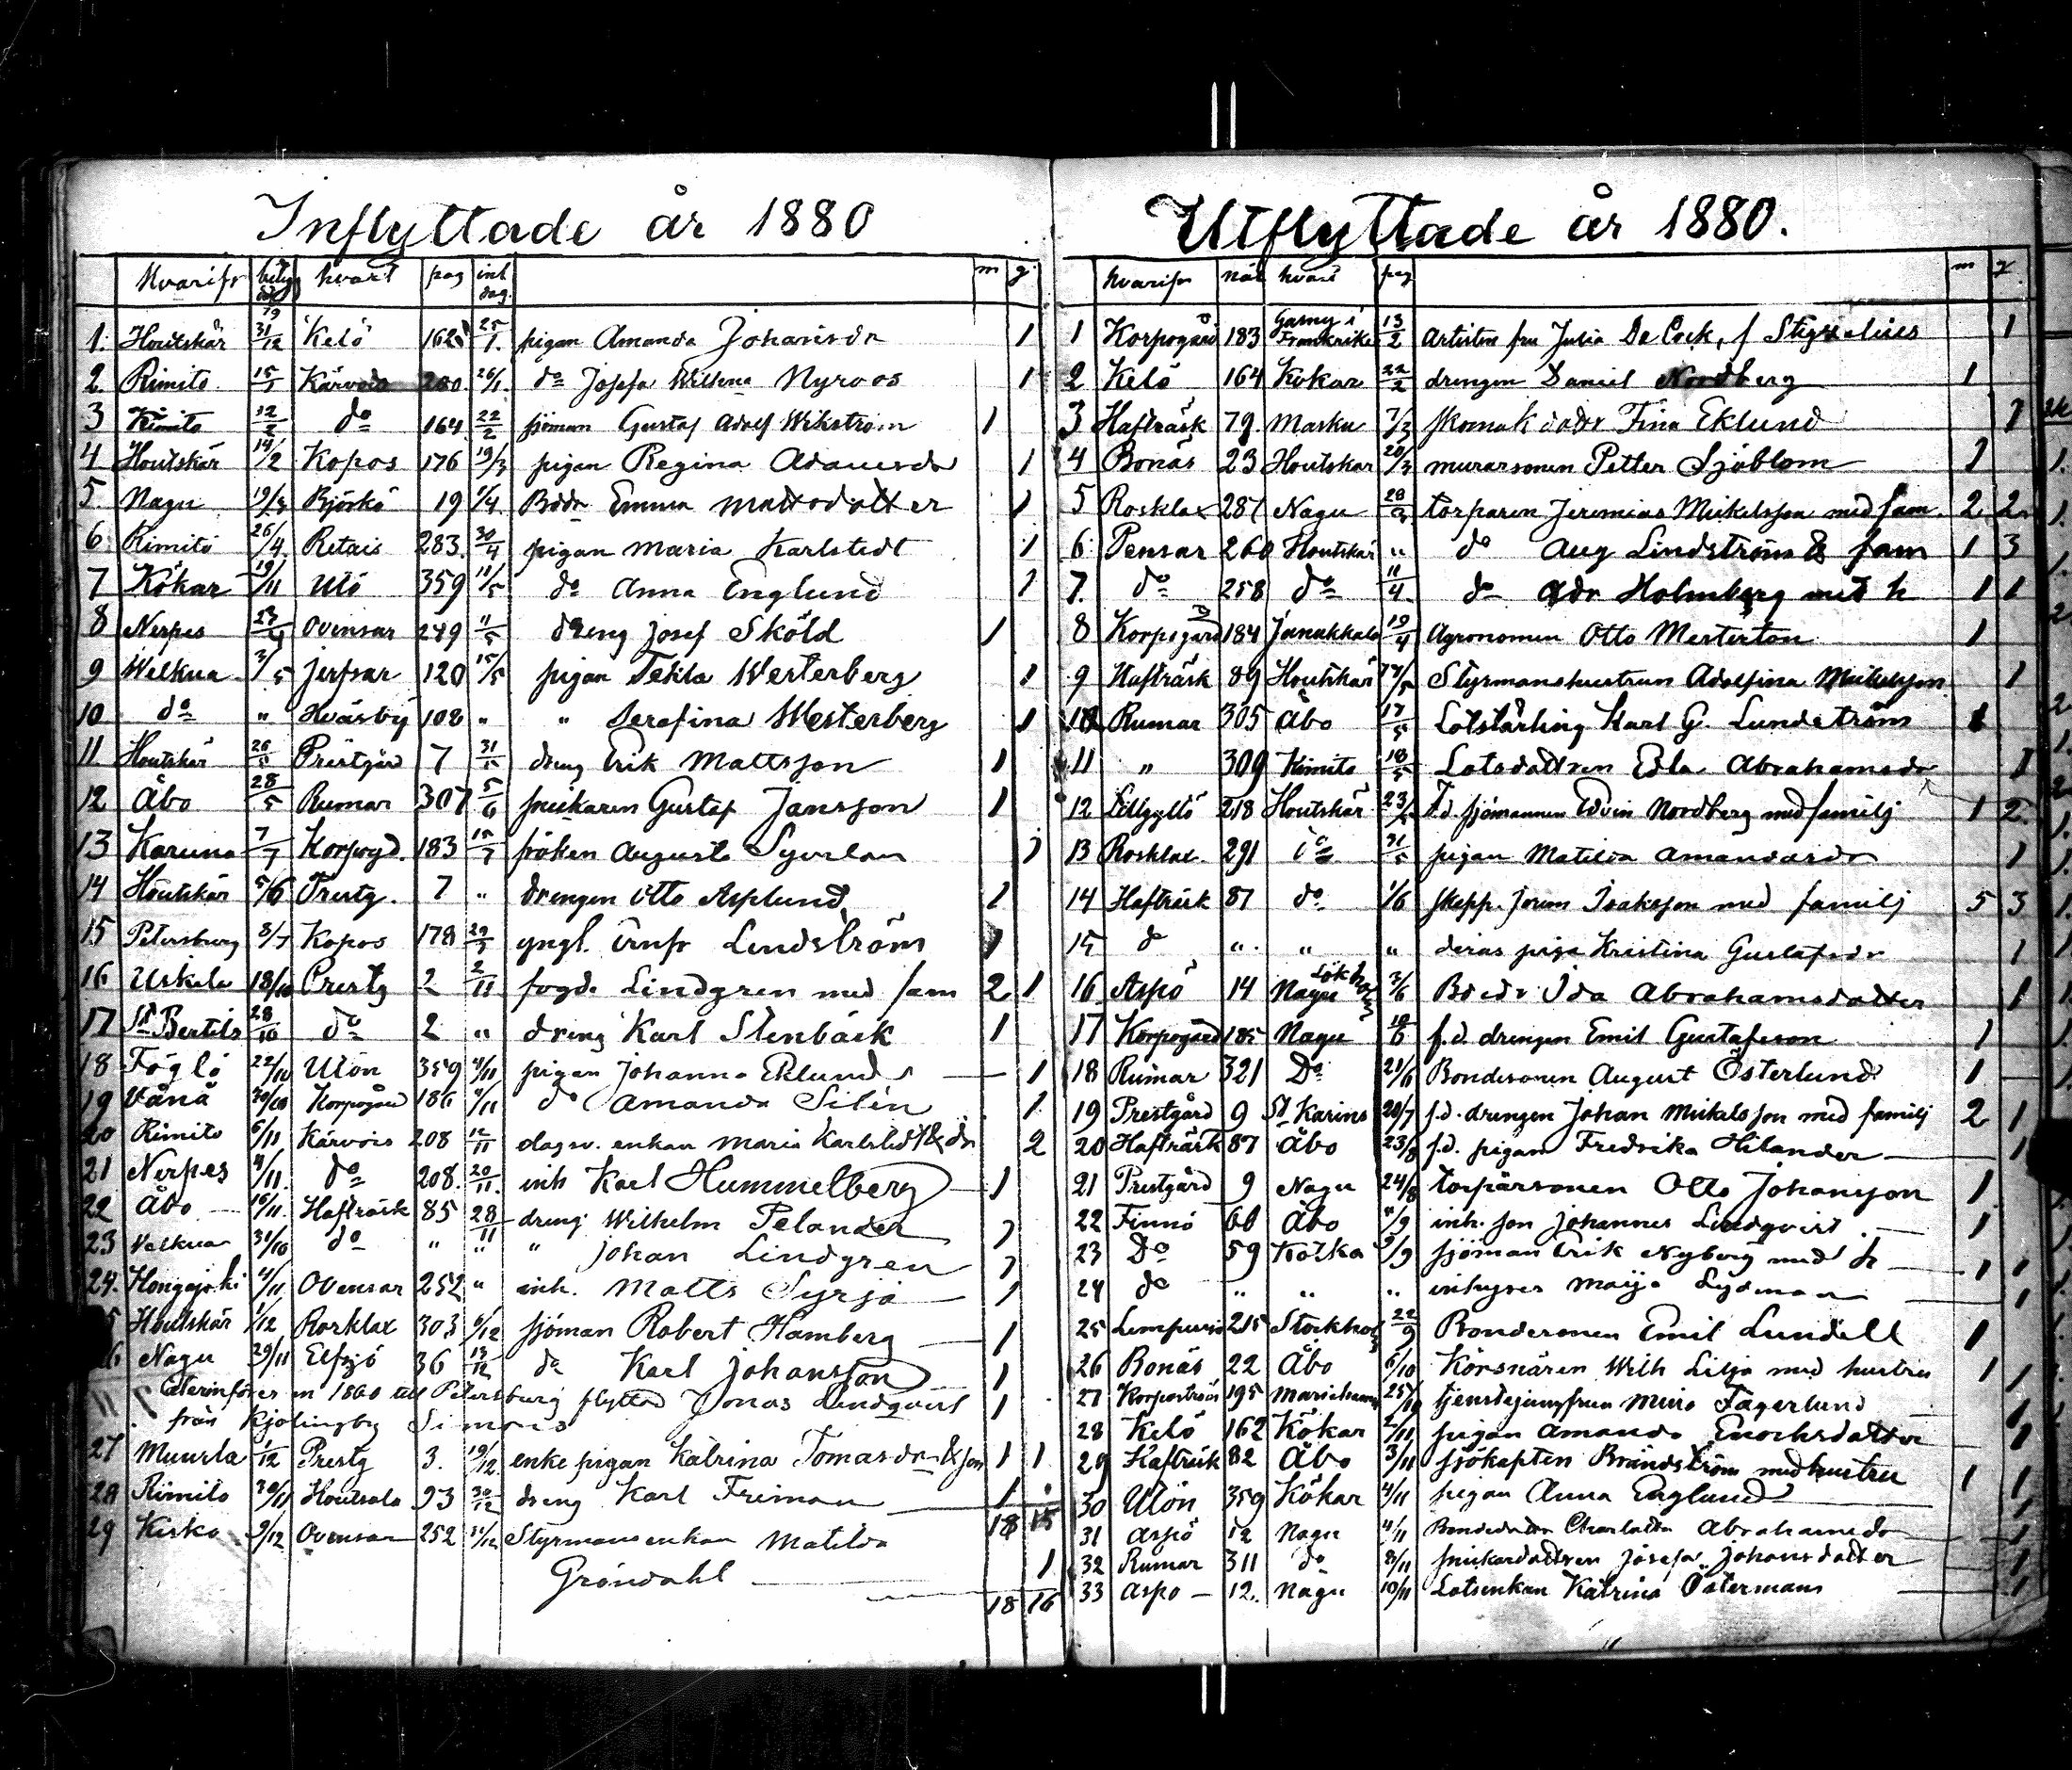 Inflyttade år 1880
hvarifr betyg dat hvart pag inl dag. m q
1. Houtskär 79 31/12 Kelö 162 25/1. pigan Amanda Johansdr 1
2. Rimito 15/1 Kärvois 280. 26/1. do Josefa Wilhna Nyroos 1
3 Kimito 12/2 do 164 22/2 sjöman Gustaf Adolf Wikström 1
4 Houtskär 14/2 Kopos 176 19/3 pigan Regina Adamsdr 1
5. Nagu 19/3 Björkö 19 1/4. Bdr Emma Mattsdotter 1
6. Rimito 26/4. Retais 283. 30/4 pigan Maria Karlstedt 1
7 Kökar 19/11 Utö 359 11/5 do Anna Englund 1
8 Nerpes 23/4 Ovensar 249 11/5 dreng Josef Sköld 1
9 Welkua 3/5 Jerfsar 120 15/5 pigan Tekla Westerberg 1
10 do " Hväsby 108 " " Serafina Westerberg 1
11. Houtskär 26/5 Prestgård 7 31/5 dreng Erik Mattsson 1
12 Åbo 28/5 Rumar 307 5/6 snickaren Gustaf Jansson 1
13 Karuna 7/7 Korpogd. 183 15/7 fröken Augusta 1
14 Houtskär 5/6 Prestg. 7 " drengen Otto Asplund 1
15 Petersburg 8/7 Kopos 178 29/7 yngl. Lindström 1
16 Uskela 18/10 Prestg 2 2/11 fogd. Lindgren med fam 2 1
17 St Bertils 28/10 do 2 " dreng Karl Stenbäck 1
18 Föglö 22/10 Utön 359 4/11 pigan Johanna Eklund 1
19 Vånå 30/10 Korpogård 186 4/11 do Amanda Silén 1
20 Rimito 6/11 Kärvois 208 12/11 dagsv. enkan Maria Karlstedt & dr 2
21 Nerpes 4/11. do 208. 20/11. inh Karl Hummelberg 1
22 Åbo 16/11. Hafträsk 85 28/11 dreng Wilhelm Pelander 1
23 Velkua 31/10 do " " " Johan Lindgren 1
24. Hongojoki 4/11 Ovensar 252 " inh. Matts Syrjä 1
5 Houtskär 1/12 Rosklax 303 6/12 sjöman Robert Hamberg 1
26 Nagu 29/11 Elfsjö 36 13/12 do Karl Johansson 1
återinföres en 1860 till Petersburg flyttad Jonas Lindqvist 1
från Kjölingby Simons
27 Muurla 1/12 Prestg 3. 19/12 enke pigan Katrina Tomasdr & son 1 1
28 Rimito 30/11 Houtsala 93 30/12 dreng Karl Friman 1
18 15
29 Kisko 9/12 Ovensar 252 11/12 Styrmansenkan Matilda
Gröndahl 1
18 16
Utflyttade år 1880.
hvarifr när hvart pag m q
1 Korpogård 183 Garny i Frankrike 13/2 Artisten fru Julia De Cock, f Stigzelius 1
2 Kelö 164 Kökar 22/2 drengen Daniel Nordberg 1
3 Hafträsk 79. Masku 7/3 skomak dotr Fina Eklund 1
4 Bonäs 23 Houtskär 20/3 murarsonen Petter Sjöblom 1
5 Rosklax 287 Nagu 28/3 torparen Jeremias Mickelsson med fam. 2 2
6 Pensar 260 Houtskär " do Aug Lindström & fam 1 3
7. do 258 do 11/4 do Adr Holmberg med h 1 1
8 Korpogård 184 Janakkala 19/4 Agronomen Otto Merterton 1
9 Hafträsk 89 Houtskär 14/5 Styrmanshustrun Adolfina Mickelsson 1
10 Rumar 305 Åbo 17/5 Lotslärling Karl G. Lundström 1
11 " 309 Kimito 18/5 Lotsdottren Edla Abrahamsdr 1
12 Lillgyltö 218 Houtskär 23/5 f.d. sjömannen Edvin Nordberg med familj 1 2.
13 Rosklax 291 do 31/5 pigan Matilda Amandasdr 1
14 Hafträsk 87 do 1/6 skepp. Joum Isaksson med familj 5 3
15 d " " " deras piga Kristina Gustafsdr 1
16 Aspö 14 Nagu Lökholm 3/6 Bdedr Ida Abrahamsdotter 1
17 Korpogård 185 Nagu 10/6 f.d. drengen Emil Gustafsson 1
18 Rumar 321 Do 21/6 Bondesonen August Österlund 1
19 Prestgård 9 St Karins 20/7 f.d. drengen Johan Mickelsson med familj 2 1
20 Hafträsk 87 Åbo 23/8 f.d. pigan Fredrika Hilander 1
21 Prestgård 9 Nagu 24/8 torparsonen Otto Johansson 1
22 Finnö 60 Åbo 4/9 inh. son Johannes Lindqvist 1
23 Do 59 Kotka 9/9 sjöman Erik Nyberg med h 1 1
24 do " " " inhyses Maija Lydman 1
25 Limpursö 215 Stockholm 22/9 Bondesonen Emil Lundell 1
26 Bonäs 22 Åbo 6/10 Körsnären Wilh Lilja med hustru 1 1
27 Korpoström 195 Mariehamn 25/10 tjenstejungfrun Mina Fagerlund 1
28 Kelö 162 Kökar 2/11 pigan Amanda Enochsdotter 1
29 Hafträsk 82 Åbo 3/11 sjökapten Brandström med hustru 1 1
30 Utön 359 Kökar 4/11 pigan Anna Englund 1
31 Aspö 12 Nagu 4/11 Bondedottr Charlotta Abrahamsdr 1
32 Rumar 311 do 8/11 snickardottren Josefa Johansdotter 1
33 Aspö 12. Nagu 10/11 Lotsenkan Katrina Östermans 1